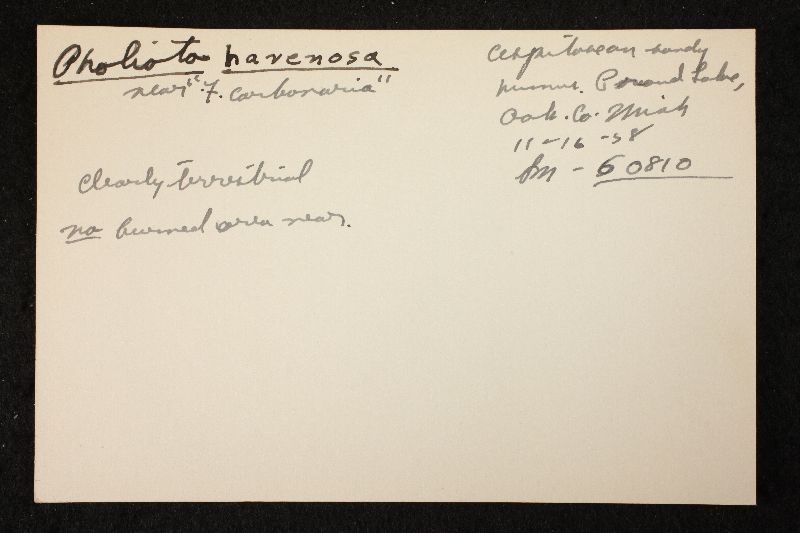 Pholiota havenosa
near "F. carbonaria"
cespitose on sandy
humus. Proud Lake,
Oak. Co. Mich
11-16-58
Sm - 60810
clearly terrestrial
no burned area near.